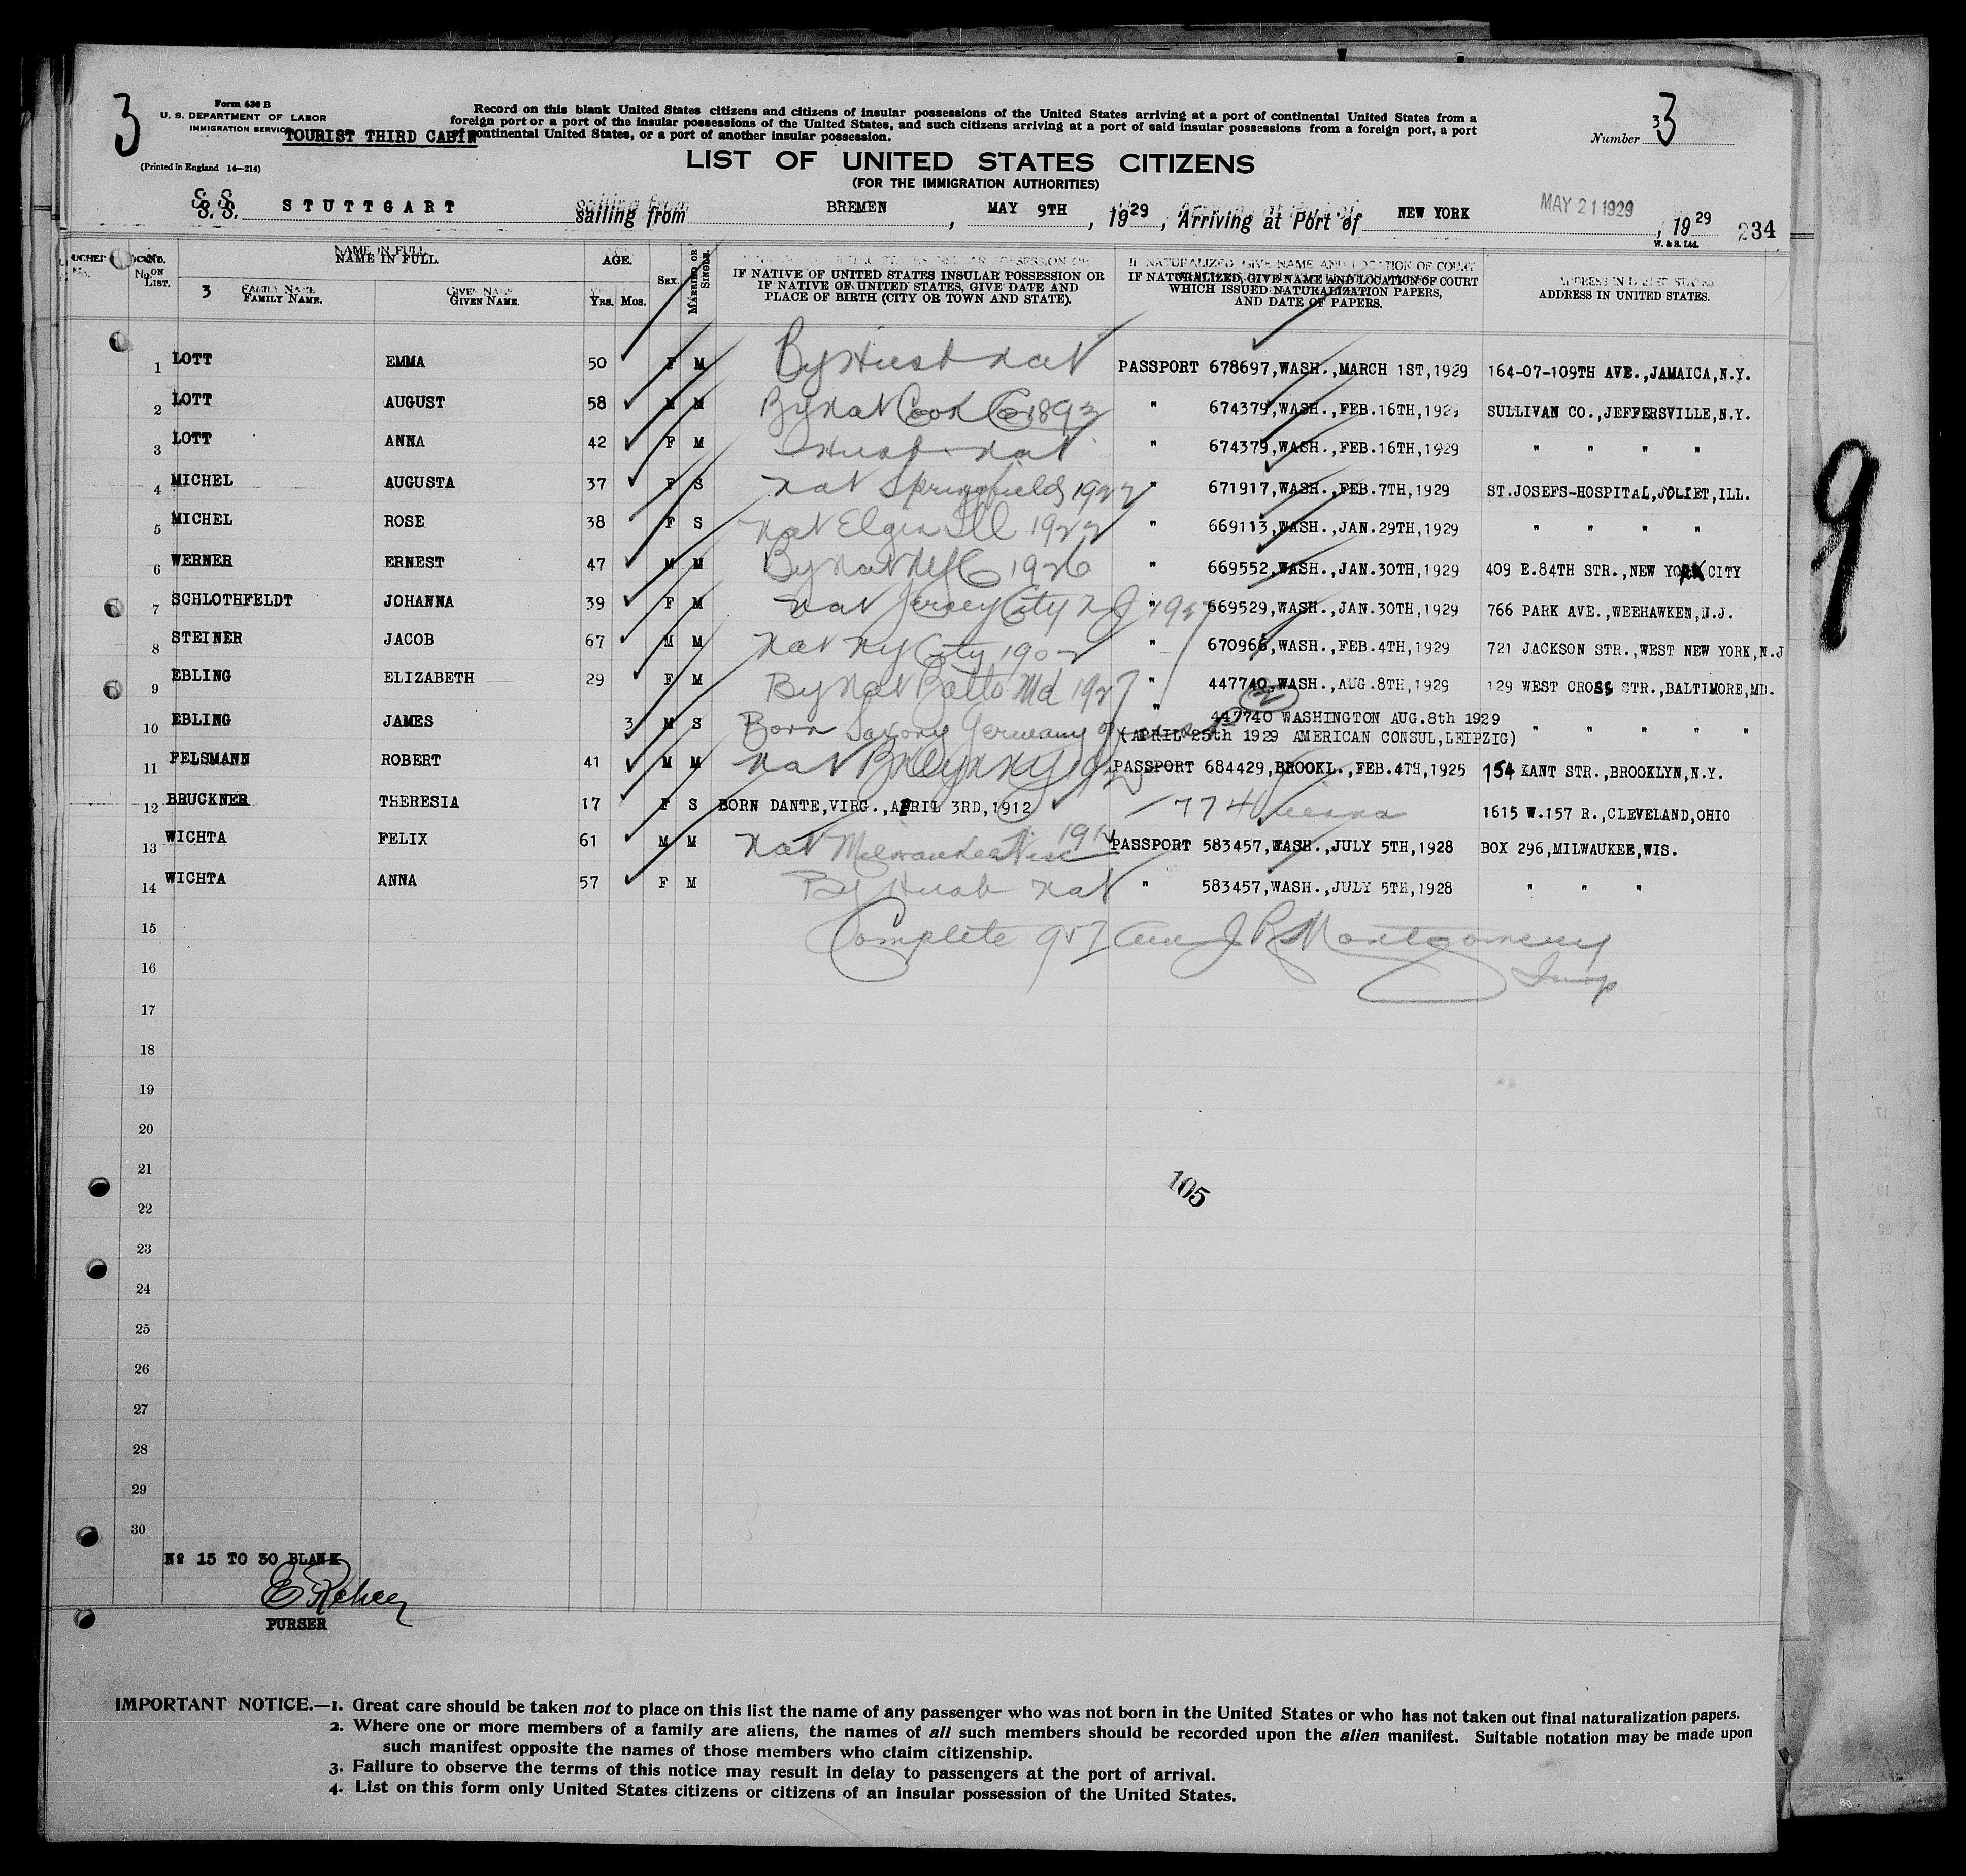 3
Form 630 B
U. S. DEPARTMENT OF LABOR
IMMIGRATION SERVICE
TOURIST THIRD CABIN
(Printed in England 14—214)
Record on this blank United States citizens and citizens of insular possessions of the United States arriving at a port of continental United States from a
foreign port or a port of the insular possessions of the United States, and such citizens arriving at a port of said insular possessions from a foreign port, a port
of continental United States, or a port of another insular possession.
Number 3 3
LIST OF UNITED STATES CITIZENS
(FOR THE IMMIGRATION AUTHORITIES)
S. S. STUTTGART sailing from BREMEN, MAY 9TH, 1929, Arriving at Port of NEW YORK MAY 21 1929, 1929
W. & S. Ltd.
234
No. ON LIST. NAME IN FULL. AGE. SEX. MARRIED OR SINGLE. IF NATIVE OF UNITED STATES INSULAR POSSESSION OR IF NATIVE OF UNITED STATES, GIVE DATE AND PLACE OF BIRTH (CITY OR TOWN AND STATE). IF NATURALIZED, GIVE NAME AND LOCATION OF COURT WHICH ISSUED NATURALIZATION PAPERS, AND DATE OF PAPERS. ADDRESS IN UNITED STATES.
3 FAMILY NAME. GIVEN NAME. YRS. MOS.
1 LOTT EMMA 50 F M By Husb nat PASSPORT 678697,WASH.,MARCH 1ST,1929 164-07-109TH AVE.,JAMAICA,N.Y.
2 LOTT AUGUST 58 M M By nat Cook Co 1892 " 674379,WASH.,FEB.16TH,1929 SULLIVAN CO.,JEFFERSVILLE,N.Y.
3 LOTT ANNA 42 F M Husb nat " 674379,WASH.,FEB.16TH,1929 " " " "
4 MICHEL AUGUSTA 37 F S nat Springfield 1927 " 671917,WASH.,FEB.7TH,1929 ST.JOSEFS-HOSPITAL,JOLIET,ILL.
5 MICHEL ROSE 38 F S nat Elgin Ill 1922 " 669113,WASH.,JAN.29TH,1929 " " " "
6 WERNER ERNEST 47 M M By nat NYC 1926 " 669552,WASH.,JAN.30TH,1929 409 E.84TH STR.,NEW YORK CITY
7 SCHLOTHFELDT JOHANNA 39 F M nat Jersey City NJ 1927 " 669529,WASH.,JAN.30TH,1929 766 PARK AVE.,WEEHAWKEN,N.J.
8 STEINER JACOB 67 M M nat NY City 1902 " 670966,WASH.,FEB.4TH,1929 721 JACKSON STR.,WEST NEW YORK,N.J
9 EBLING ELIZABETH 29 F M By nat Balto Md 1927 " 447740,WASH.,AUG.8TH,1929 129 WEST CROSS STR.,BALTIMORE,MD.
10 EBLING JAMES 3 M S Born Saxony Germany " 447740 WASHINGTON AUG.8th 1929 " " " " "
(APRIL 25th 1929 AMERICAN CONSUL,LEIPZIG)
11 FELSMANN ROBERT 41 M M nat Bklyn NY PASSPORT 684429,BROOKL.,FEB.4TH,1925 154 KANT STR.,BROOKLYN,N.Y.
12 BRUCKNER THERESIA 17 F S BORN DANTE,VIRG.,APRIL 3RD,1912 774 Vienna 1615 W.157 R.,CLEVELAND,OHIO
13 WICHTA FELIX 61 M M nat Milwaukee Wisc 1912 PASSPORT 583457,WASH.,JULY 5TH,1928 BOX 296,MILWAUKEE,WIS.
14 WICHTA ANNA 57 F M By Husb nat " 583457,WASH.,JULY 5TH,1928 " " "
15 Complete J R Montgomery
16 Insp
17
18
19
20
21
105
22
23
24
25
26
27
28
29
30
Nº 15 TO 30 BLANK
PURSER
9
IMPORTANT NOTICE.—1. Great care should be taken not to place on this list the name of any passenger who was not born in the United States or who has not taken out final naturalization papers.
2. Where one or more members of a family are aliens, the names of all such members should be recorded upon the alien manifest. Suitable notation may be made upon
such manifest opposite the names of those members who claim citizenship.
3. Failure to observe the terms of this notice may result in delay to passengers at the port of arrival.
4. List on this form only United States citizens or citizens of an insular possession of the United States.